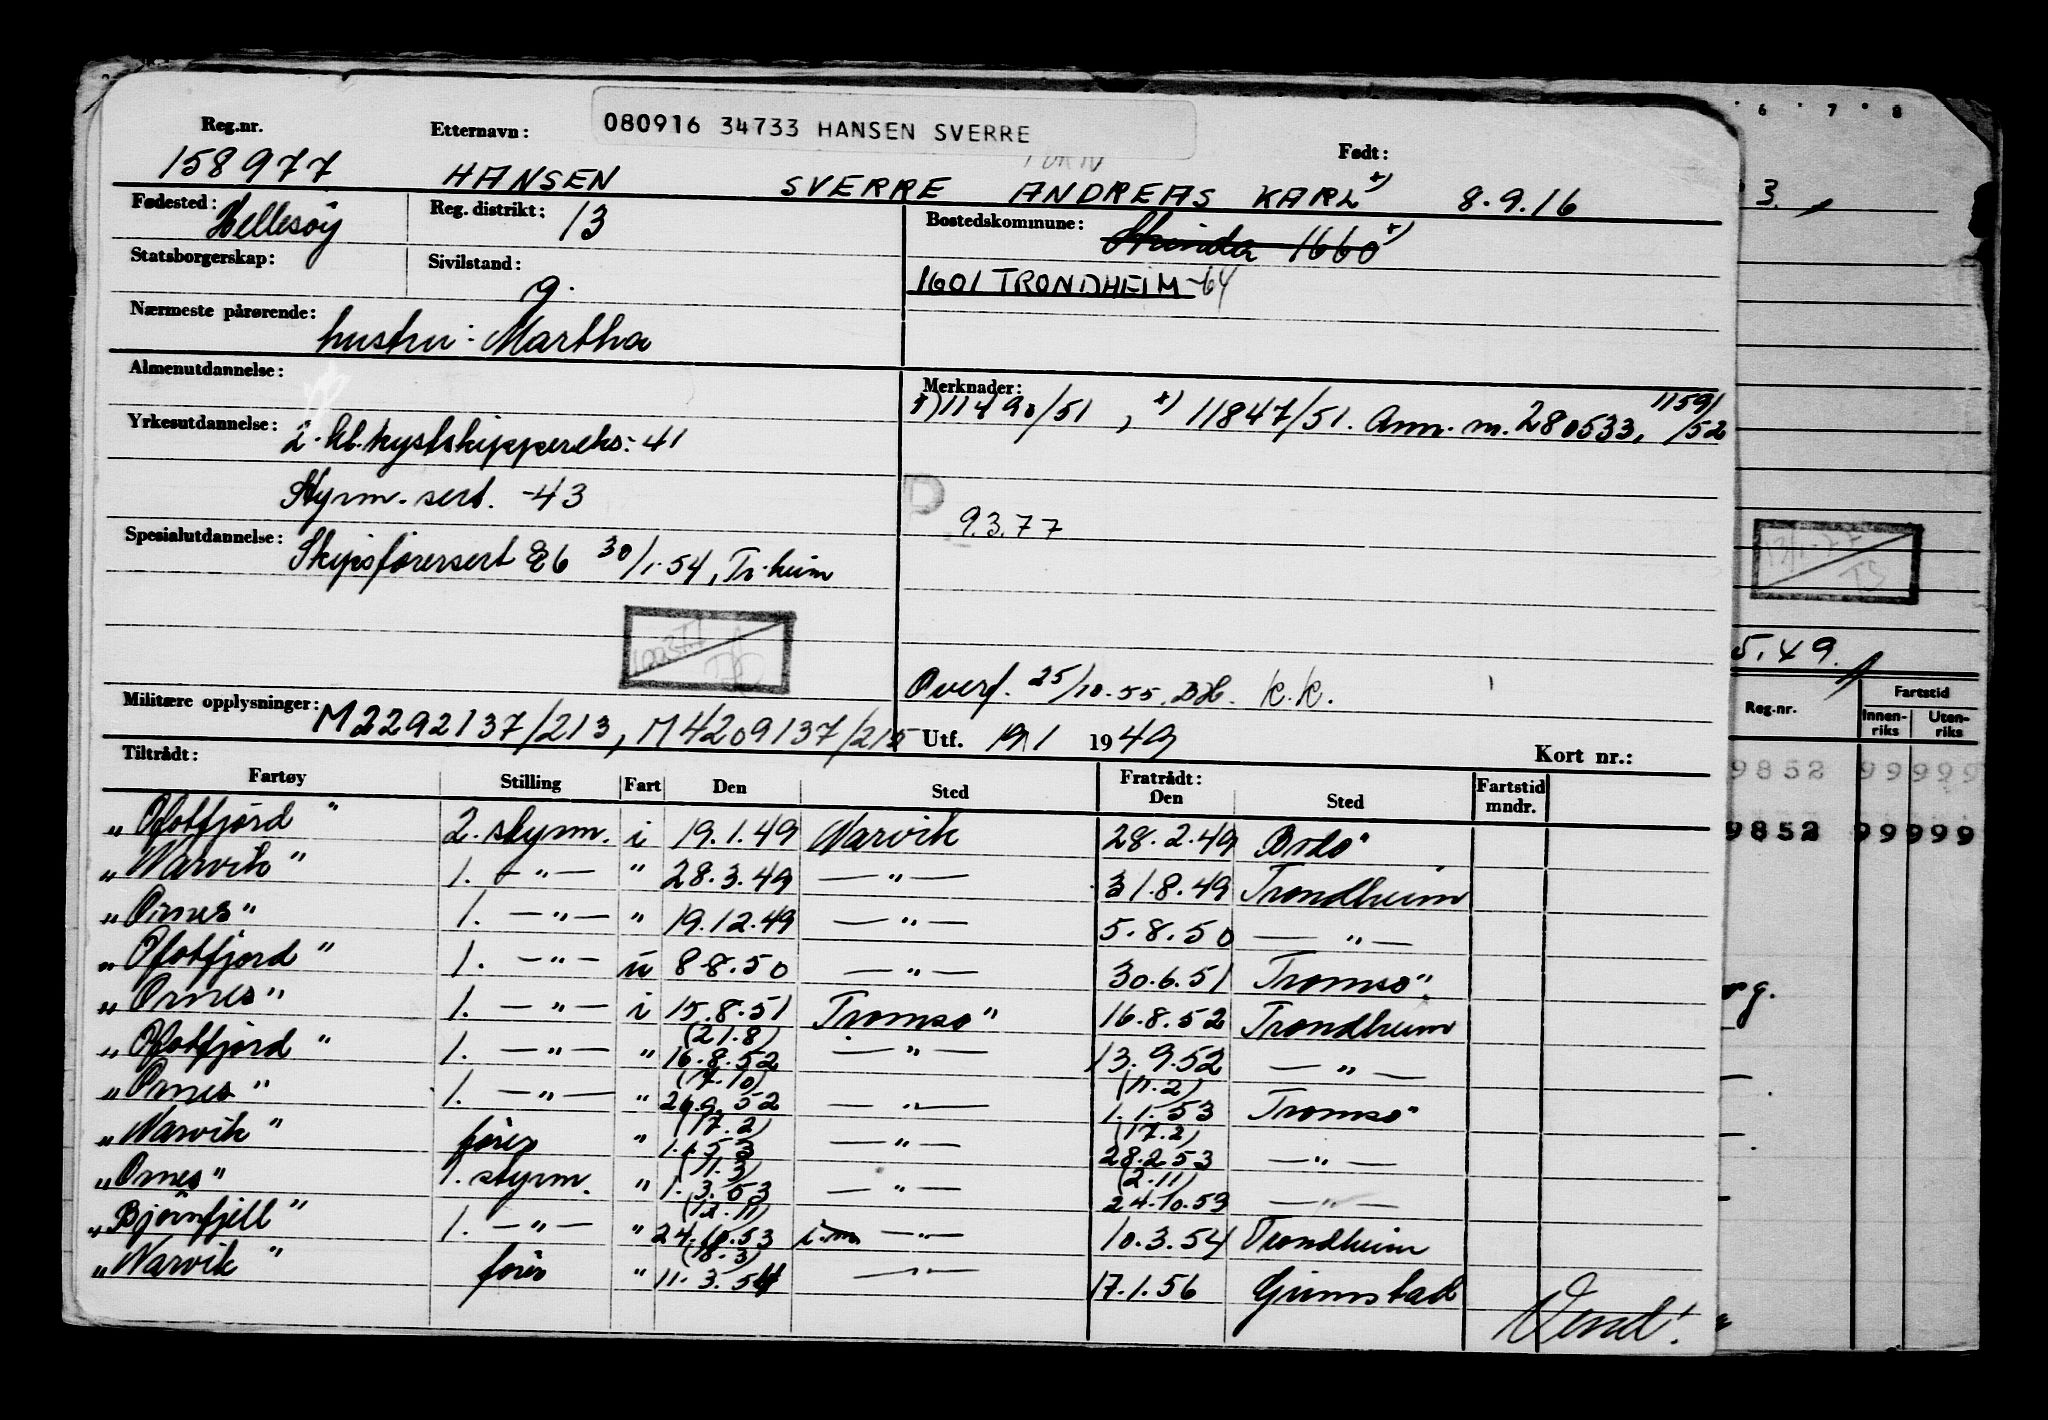 080916 34733 HANSEN SVERRE
Reg.nr. Etternavn: Født:
158977 HANSEN SVERRE ANDREAS KARL x) 8.9.16
Fødested: Hellesöy Reg. distrikt: 13 Bostedskommune: Strinda 1660 x)
Statsborgerskap: Sivilstand: g. 1601 TRONDHEIM -64
Nærmeste pårørende: hustru: Martha
Almenutdannelse: Merknader:
x) 11847/51. Ann. m. 280533, 1159/52
Yrkesutdannelse: 2. kl. kystskippereks: 41
Styrm. sert. -43
9.3.77
Spesialutdannelse: Skipsförersert 86 30/1-54, Tr.heim
Overf. 25/10.55. K.K.
Militære opplysninger: M2292137/213, M4209137/215 Utf. 19/1 1949
Kort nr.:
Tiltrådt: Fratrådt:
Fartøy Stilling Fart Den Sted Den Sted Fartstid mndr.
"Ofotfjord" 2. styrm. i 19.1.49 Narvik 28.2.49 Bodö
"Narvik" 1. —"— " 28.3.49 —"— 31.8.49 Trondheim
"Ornes" 1. —"— " 19.12.49 —"— 5.8.50 —"—
"Ofotfjord" 1. —"— u 8.8.50 —"— 30.6.51 Tromsö
"Ornes" 1. —"— i 15.8.51 Tromsö 16.8.52 Trondheim
(21.8)
"Ofotfjord" 1. —"— " 16.8.52 —"— 13.9.52 —"—
(17.10) (11.2)
"Ornes" 1. —"— " 26.9.52 —"— 1.1.53 Tromsö
(17.2) (17.2)
"Narvik" förer " 1.1.53 —"— 28.2.53 —"—
(11.3) (2.11)
"Ornes" 1. styrm. " 1.3.53 —"— 24.10.53 —"—
(12.11)
"Bjørnfjell" 1. —"— " 24.10.53 i.m —"— 10.3.54 Trondheim
(18.3)
"Narvik" förer " 11.3.54 —"— 17.1.56 Grimstad
Vend!
6 7 8
3.
5.49.
Reg.nr. Fartstid
Innenriks Utenriks
9852 99999
9852 99999
org.